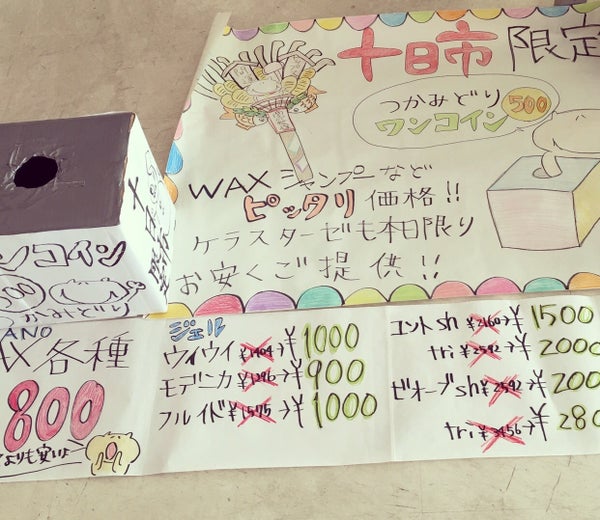 十日市 限定
つかみどり 500
ワンコイン
WAX シャンプーなど
ピッタリ 価格!!
ケラスターゼも本日限り
お安くご提供!!
ンコイン
つかみどり
十日市
ANO
X 各種
800
よりも安いよ
ジェル
ウイウイ ¥1404→¥1000
モデニカ ¥1296→¥900
フルイド ¥1575→¥1000
コントsh ¥2160→¥1500
tri ¥2592→¥2000
ビオーブsh ¥2592→¥200
tri ¥3456→¥280